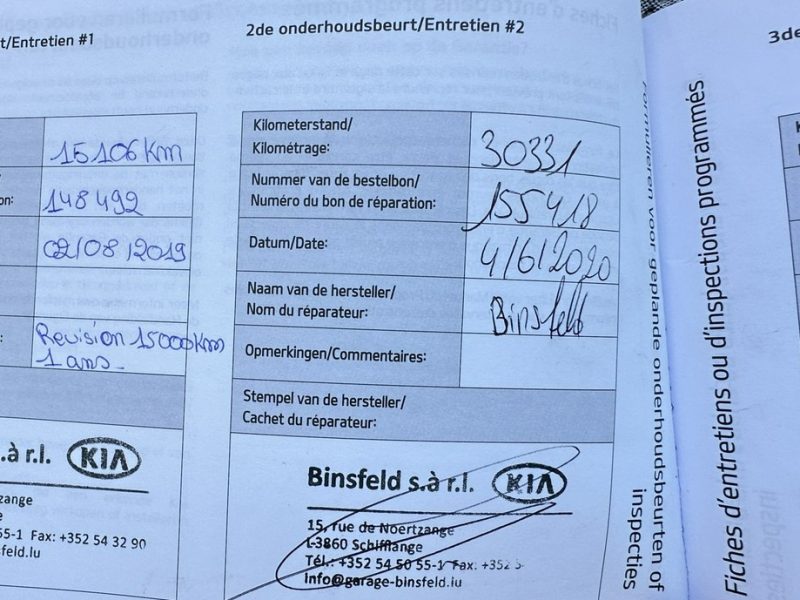 t/Entretien #1
15106 Km
148 492
on:
02/08/2019
Revision 15000Km
1 ans.
.à r.l. KIA
zange
55-1 Fax: +352 54 32 90
sfeld.lu
2de onderhoudsbeurt/Entretien #2
Kilometerstand/
Kilométrage:
30331
Nummer van de bestelbon/
Numéro du bon de réparation:
155418
Datum/Date:
4/6/2020
Naam van de hersteller/
Nom du réparateur:
Binsfeld
Opmerkingen/Commentaires:
Stempel van de hersteller/
Cachet du réparateur:
Binsfeld s.à r.l. KIA
15, rue de Noertzange
L-3860 Schifflange
Tél.: +352 54 50 55-1 Fax: +352 5
Info@garage-binsfeld.lu
Formulieren voor geplande onderhoudsbeurten of
inspecties
Fiches d'entretiens ou d'inspections programmés
3de